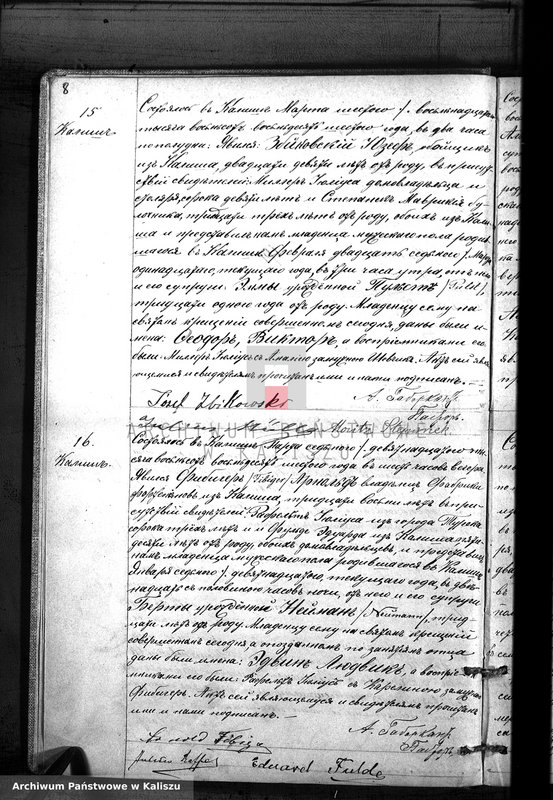 8
15
Калишъ
Состоялось въ Калишѣ Марта шестого /. восемнадцатаго
тысяча восемьсотъ восемьдесятъ шестого года, въ два часа
пополудни. Явился Збиковскій Юзефъ, обойщикъ
изъ Калиша, двадцати девяти лѣтъ отъ роду, въ присут
ствіи свидѣтелей: Миллера Юліуса домовладѣльца и
столяра, сорока девяти лѣтъ и Маврикія бу
лочника, тридцати трехъ лѣтъ отъ роду, обоихъ изъ Кали
ша и предъявилъ намъ младенца мужескаго пола родив
шагося въ Калишѣ Февраля двадцать седьмого /. Марта
одинадцатаго, текущаго года, въ три часа утра, отъ него
и его супруги Эммы урожденной
тридцати одного года отъ роду. Младенцу сему на
святомъ крещеніи совершенномъ сегодня, даны были и
мена: Ѳеодоръ, Викторъ, а воспріемниками его
были: Миллеръ Юліусъ съ замужнею Актъ сей явля
ющемуся и свидѣтелямъ прочитанъ ими и нами подписанъ. —
Josef Zbikowski
А. Габеркантъ
Пасторъ
Moritz
ARCHIWUM PAŃSTWOWE
W KALISZU
16.
Калишъ
Состоялось въ Калишѣ Марта седьмого /. девятнадцатаго ты
сяча восемьсотъ восемьдесятъ шестого года въ шесть часовъ вечера.
Явился Фибигеръ /Fibiger/ Арнольдъ владѣлецъ фабрики
фортепіановъ изъ Калиша, тридцати восьми лѣтъ въ при
сутствіи свидѣтелей: Юліуса изъ города Турека
сорока трехъ лѣтъ и Фульде Эдуарда изъ Калиша
десяти лѣтъ отъ роду, обоихъ домовладѣльцевъ, и предъявилъ
намъ младенца мужескаго пола родившагося въ Калишѣ
Января седьмого /. девятнадцатаго, текущаго года, въ двѣ
надцать съ половиною часовъ ночи, отъ него и его супруги
Берты урожденной Нейманъ /Neumann/, трид
цати лѣтъ отъ роду. Младенцу сему на святомъ крещеніи
совершенномъ сегодня а опозданномъ по занятіямъ отца
даны были имена: Эдвинъ Людвикъ, а воспріе
мниками его были: Юліусъ съ замужнею
Фибигеръ. Актъ сей являющемуся и свидѣтелямъ прочитанъ
ими и нами подписанъ. —
Arnold Fibiger
А. Габеркантъ
Пасторъ
Eduard Fulde
Archiwum Państwowe w Kaliszu